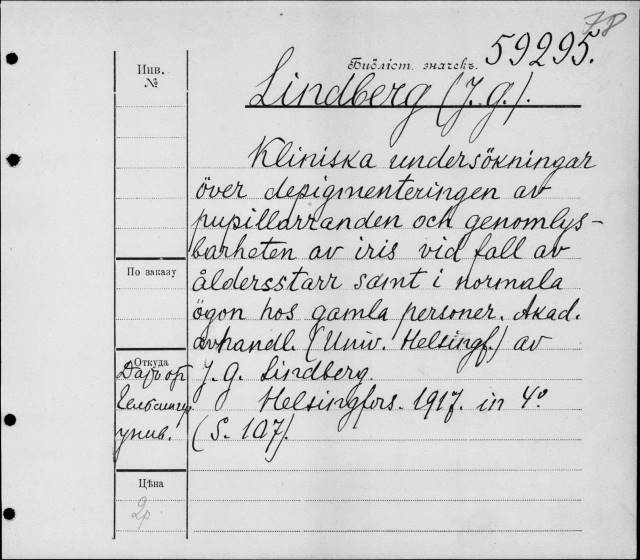 78
59295.
Библіот. значекъ.
Инв.
№
Lindberg (J. G.).
Kliniska undersökningar
över depigmenteringen av
pupillarranden och genomlys-
barheten av iris vid fall av
По заказу
åldersstarr samt i normala
ögon hos gamla personer. Akad.
avhandl. (Univ. Helsingf.) av
Откуда
J. G. Lindberg.
Даръ от
Гельсингф.
унив.
Helsingfors. 1917. in 4º
(S. 107).
Цѣна
2р